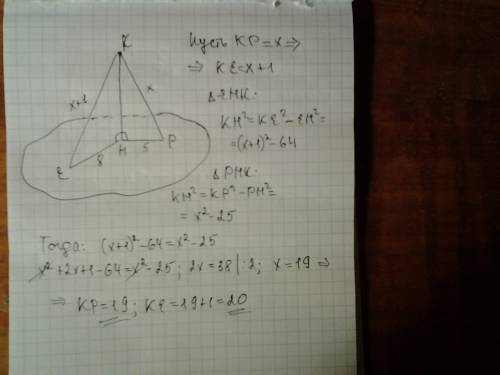 K
x+1
x
H
8
5
P
E
Пусть KP=x ⇒
⇒ KE=x+1
ΔEHK:
KH²=KE²-EH²=
=(x+1)²-64
ΔPHK:
KH²=KP²-PH²=
=x²-25
Тогда: (x+1)²-64=x²-25
x²+2x+1-64=x²-25; 2x=38|:2; x=19 ⇒
⇒ KP=19; KE=19+1=20